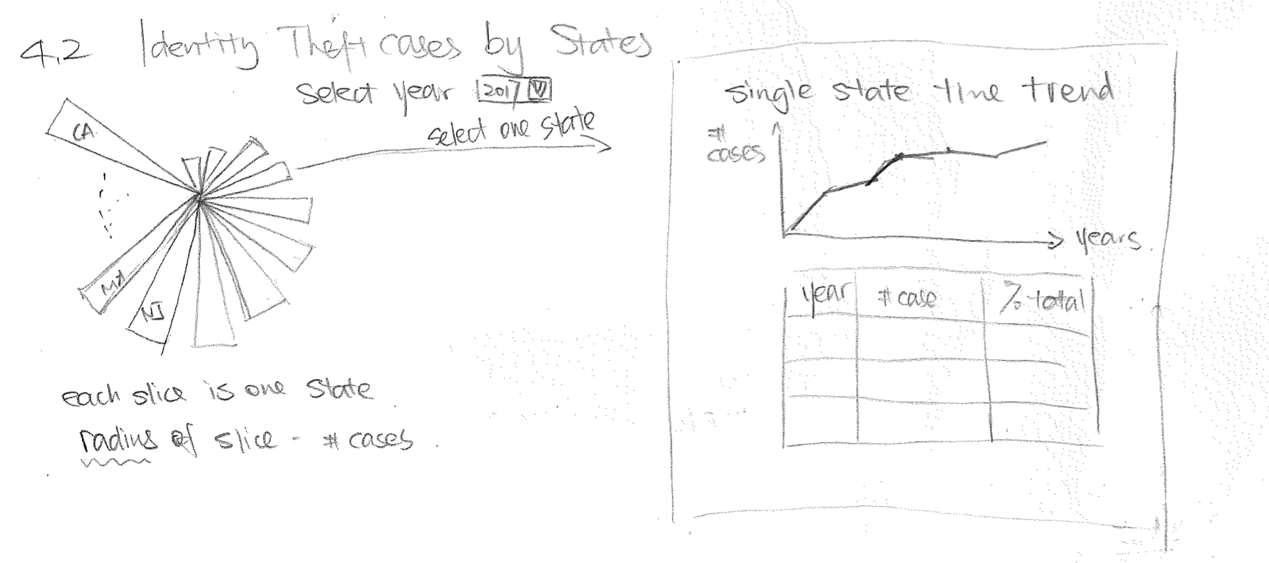 4.2 Identity Theft cases by States
select year 2017
select one state
CA
MA
NJ
each slice is one state
radius of slice - # cases.
single state time trend
# cases
years.
year # case % total